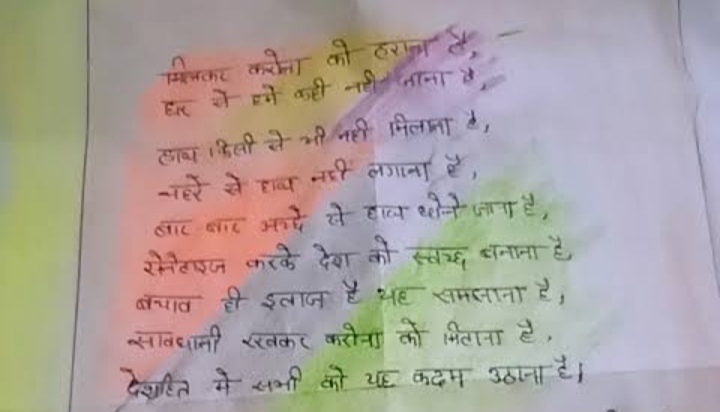 मिलकर करोना को हराना है,
घर से हमें कही नही जाना है,
हाथ किसी से भी नही मिलाना है,
चहरे से हाथ नही लगाना है,
बार बार अच्छे से हाथ धोने जाना है,
सेनेटाइज करके देश को स्वच्छ बनाना है,
बचाव ही इलाज है यह समझाना है,
सावधानी रखकर करोना को मिटाना है,
देशहित मे सभी को यह कदम उठाना है।